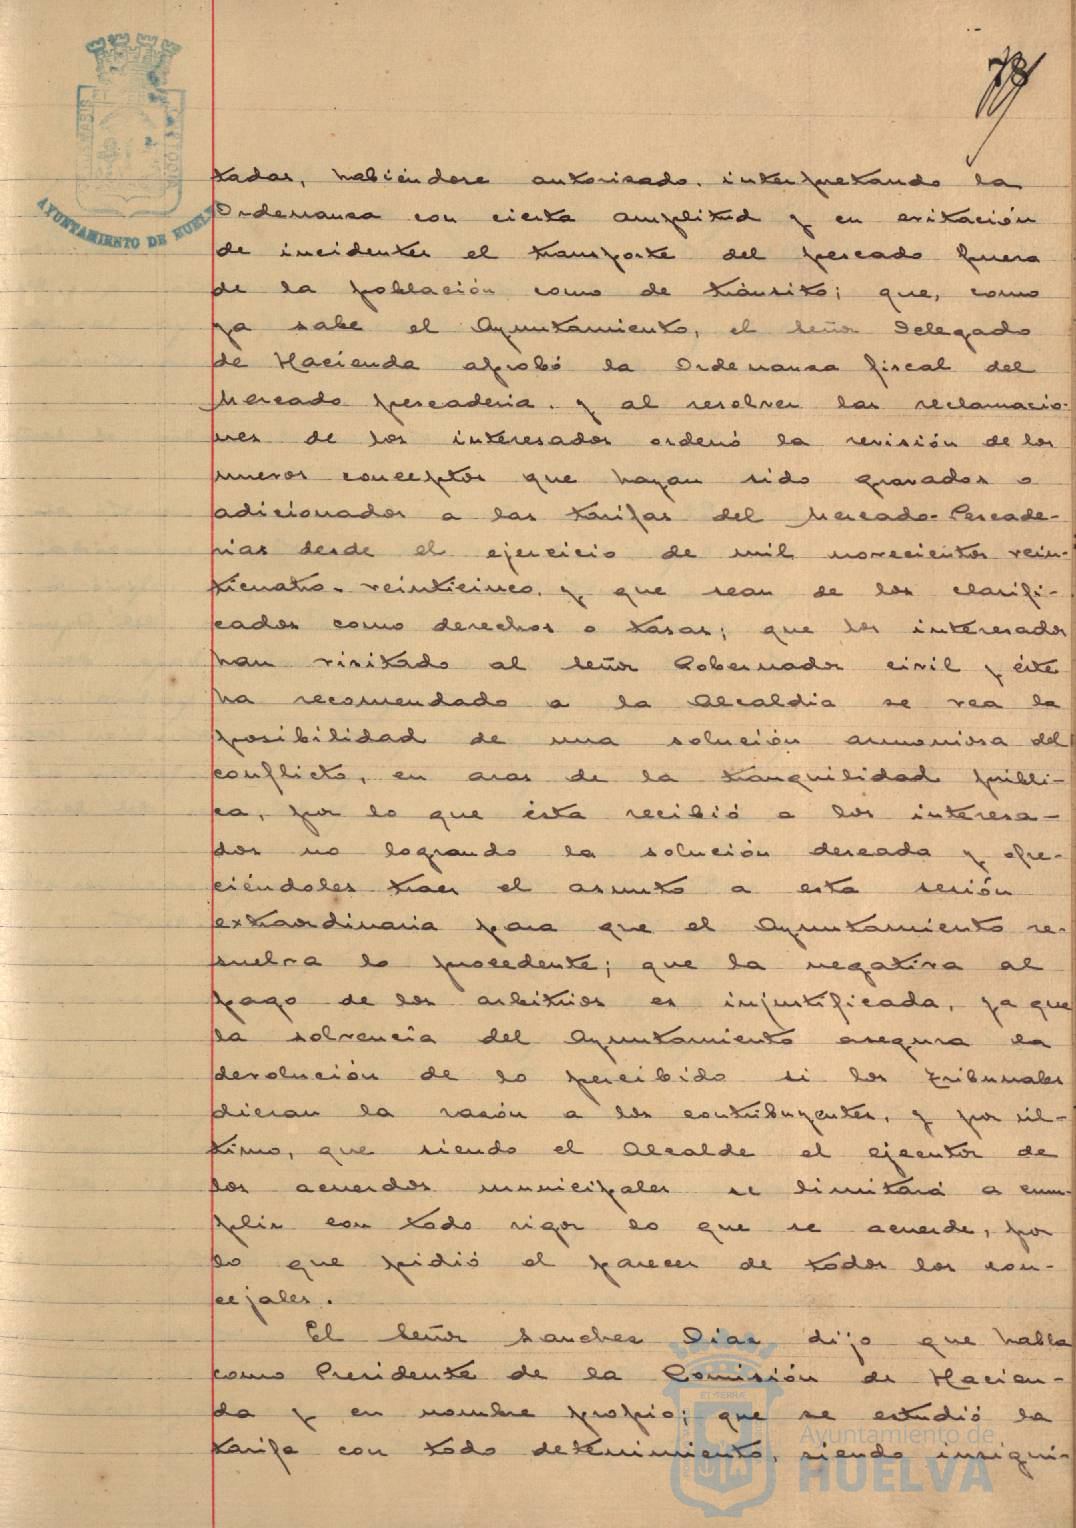 78
AYUNTAMIENTO DE HUELVA
tadas, habiéndose autorisado. interpretando la
Ordenansa con cierta amplitud y en evitación
de incidentes el transporte del pescado fuera
de la población como de tránsito; que, como
ya sabe el Ayuntamiento, el señor Delegado
de Hacienda aprobó la Ordenansa fiscal del
Mercado pescadería. y al resolver las reclamacio-
nes de los interesados ordenó la revisión de los
nuevos conceptos que hayan sido gravados o
adicionados a las tarifas del Mercado-Pescade-
rías desde el ejercicio de mil novecientos vein-
ticuatro-veinticinco. y que sean de los clasifi-
cados como derechos o tasas; que los interesados
han visitado al señor Gobernador civil y éste
ha recomendado a la Alcaldía se vea la
posibilidad de una solución armoniosa del
conflicto, en aras de la tranquilidad públi-
ca, por lo que ésta recibió a los interesa-
dos no logrando la solución deseada y ofre-
ciéndoles traer el asunto a esta sesión
extraordinaria para que el Ayuntamiento re-
suelva lo procedente; que la negativa al
pago de los arbitrios es injustificada, ya que
la solvencia del Ayuntamiento asegura la
devolución de lo percibido si los tribunales
dieran la rasón a los contribuyentes, y por úl-
timo, que siendo el Alcalde el ejecutor de
los acuerdos municipales se limitará a cum-
plir con todo rigor lo que se acuerde, por
lo que pidió el parecer de todos los con-
cejales.
El señor Sanches Dias dijo que habla
como Presidente de la Comisión de Hacien-
da y en nombre propio; que se estudió la
tarifa con todo detenimiento, siendo insigni-
Ayuntamiento de
HUELVA